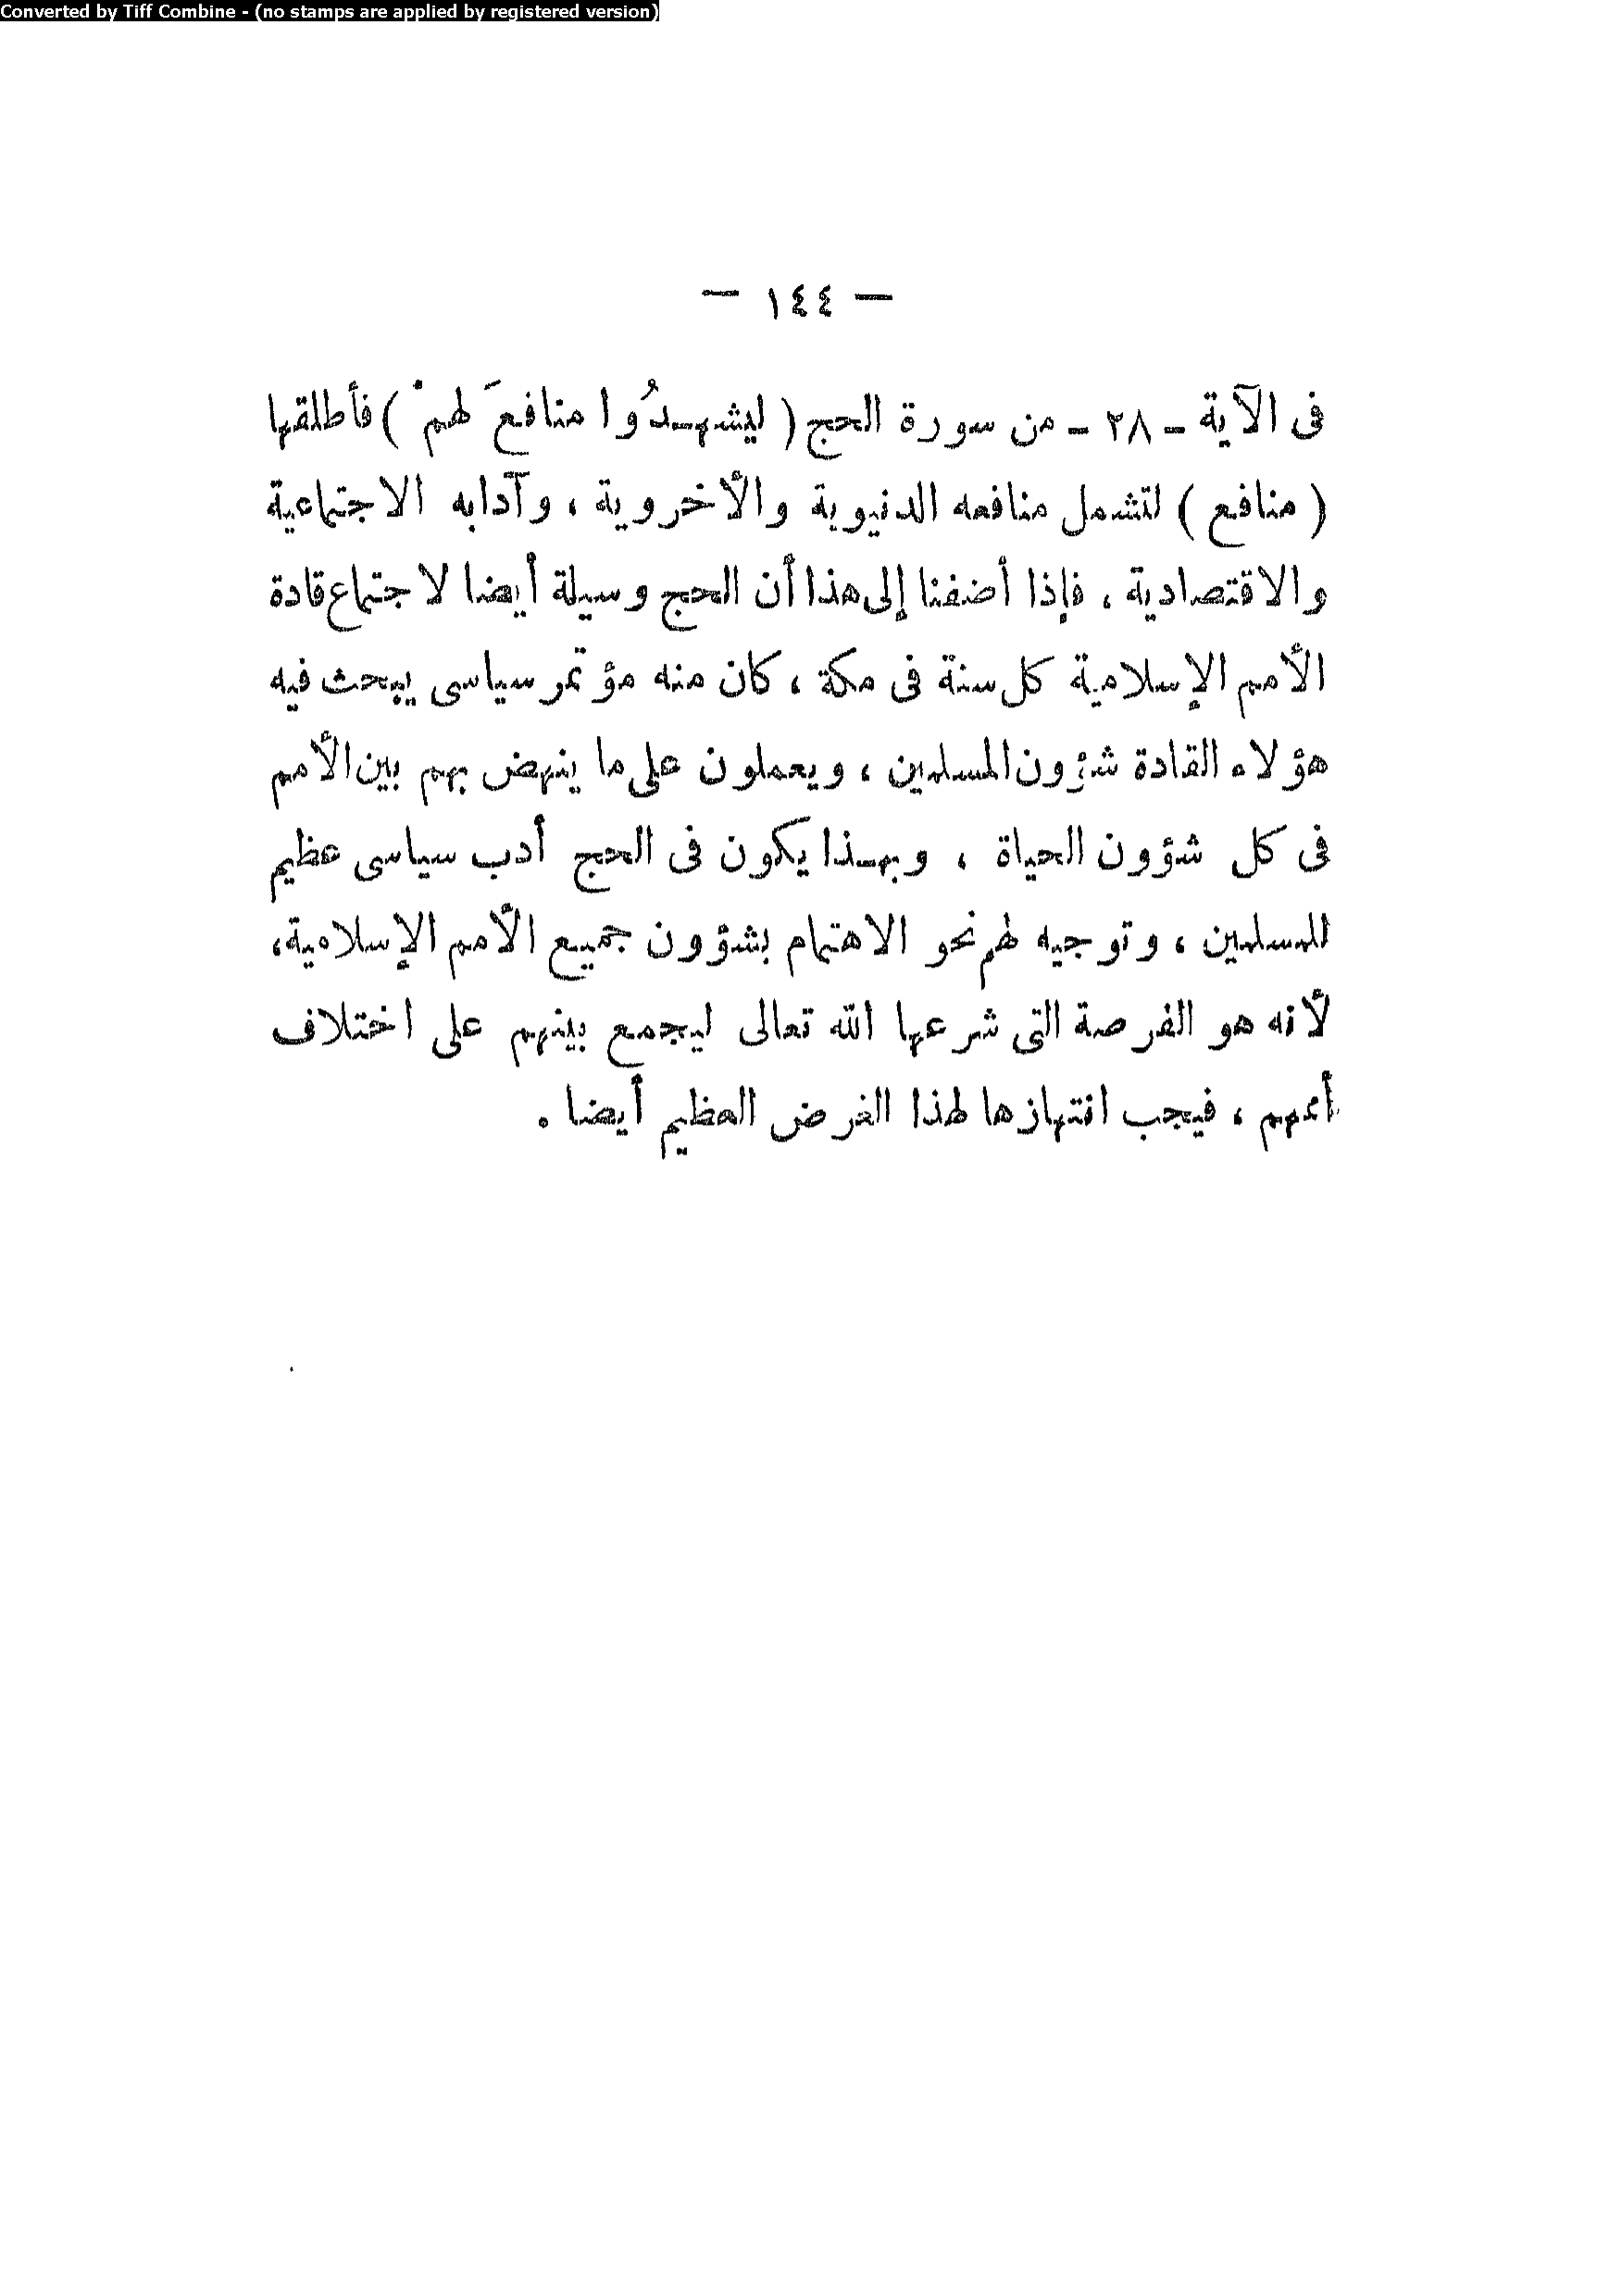 Converted by Tiff Combine - (no stamps are applied by registered version)
— ١٤٤ —
فى الآية - ٢٨ - من سورة الحج ( ليشهـدُوا منافعَ لهمْ ) فأطلقها
( منافع ) لتشمل منافعه الدنيوية والأخروية ، وآدابه الاجتماعية
والاقتصادية ، فإذا أضفنا إلى هذا أن الحج وسيلة أيضا لاجتماع قادة
الأمم الإسلامية كل سنة فى مكة ، كان منه مؤتمر سياسى يبحث فيه
هؤلاء القادة شئون المسلمين ، ويعملون على ما ينهض بهم بين الأمم
فى كل شؤون الحياة ، وبهـذا يكون فى الحج أدب سياسى عظيم
للمسلمين ، وتوجيه لهم نحو الاهتمام بشؤون جميع الأمم الإسلامية،
لأنه هو الفرصة التى شرعها الله تعالى ليجمع بينهم على اختلاف
أممهم ، فيجب انتهازها لهذا الغرض العظيم أيضا .